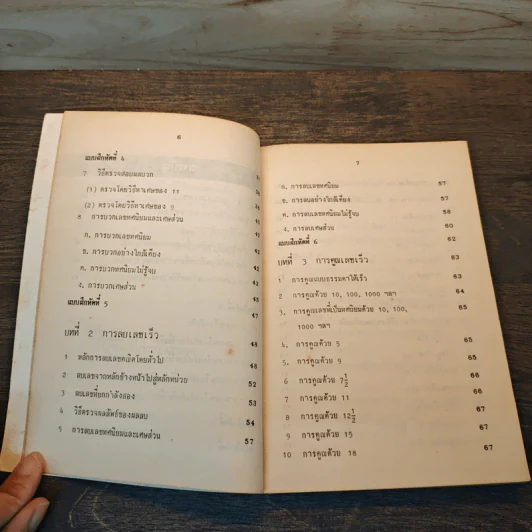 6
แบบฝึกหัดที่ 4
7 วิธีตรวจสอบผลบวก
(1) ตรวจโดยวิธีหาเศษของ 11
(2) ตรวจโดยวิธีหาเศษของ 9
8 การบวกเลขทศนิยมและเศษส่วน
ก. การบวกเลขทศนิยม
ข. การบวกอย่างใกล้เคียง
ค. การบวกทศนิยมไม่รู้จบ
ง. การบวกเศษส่วน
แบบฝึกหัดที่ 5
บทที่ 2 การลบเลขเร็ว
1 หลักการลบเลขคณิตโดยทั่วไป
2 ลบเลขจากหลักข้างหน้าไปสู่หลักหน่วย 52
3 ลบเลขที่ยกกำลังสอง 53
4 วิธีตรวจผลลัพธ์ของผลลบ 54
5 การลบเลขทศนิยมและเศษส่วน 57
7
ก. การลบเลขทศนิยม 57
ข. การลบอย่างใกล้เคียง 57
ค. การลบเลขทศนิยมไม่รู้จบ 58
ง. การลบเศษส่วน 60
แบบฝึกหัดที่ 6 62
บทที่ 3 การคูณเลขเร็ว 63
1 การคูณแบบธรรมดาให้เร็ว 63
2 การคูณด้วย 10, 100, 1000 ฯลฯ 64
3. การคูณเลขที่เป็นทศนิยมด้วย 10, 100,
1000 ฯลฯ 65
4. การคูณด้วย 5 65
5. การคูณด้วย 9 65
6 การคูณด้วย 7½ 66
7 การคูณด้วย 11 66
8 การคูณด้วย 12½ 67
9 การคูณด้วย 15 67
10 การคูณด้วย 18 67